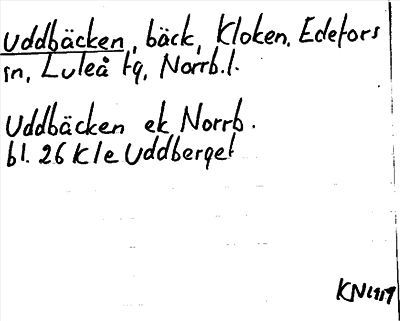 Uddbäcken, bäck, Kloken, Edefors
sn, Luleå tg, Norrb.l.
Uddbäcken ek Norrb.
bl. 26 Kle Uddberget